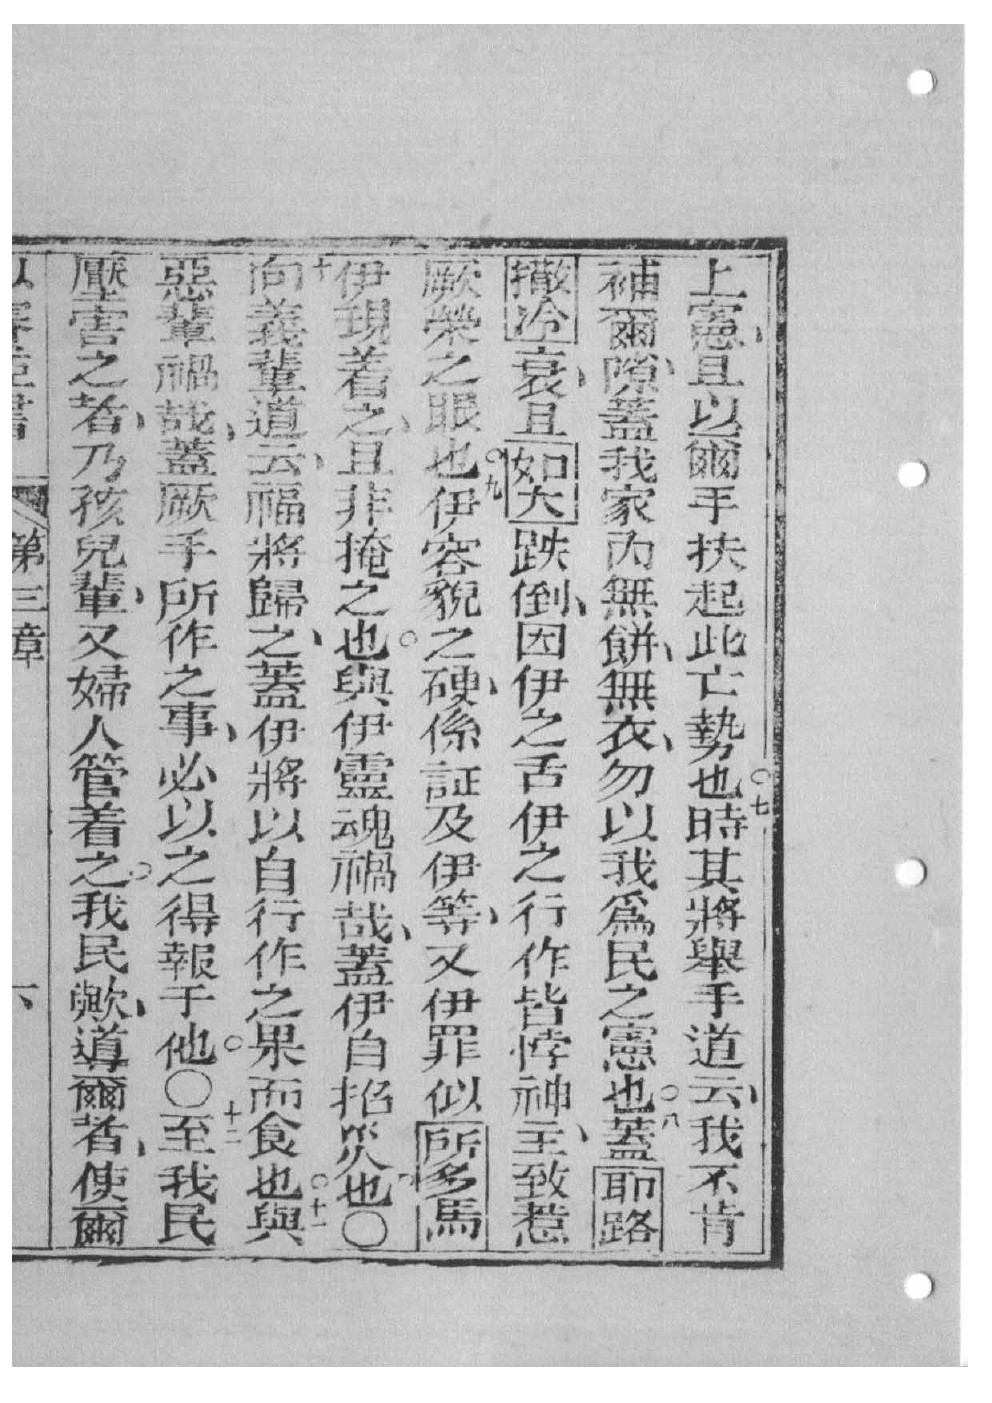 上憲、且以爾手扶起此亡勢也○七時其將舉手道云、我不肯
補爾隙、蓋我家內無餅、無衣、勿以我爲民之憲也○八蓋耶路
撒冷衰、且如大跌倒、因伊之舌伊之行作皆悖神主、致惹
厥榮之眼也○九伊容貌之硬、係証及伊等、又伊罪似所多馬
伊現着之、且非掩之也○與伊靈魂禍哉、蓋伊自招災也○
十向義輩道云、福將歸之、蓋伊將以自行作之果而食也○十一與
惡輩禍哉、蓋厥手所作之事、必以之得報于他○○十二至我民
壓害之者、乃孩兒輩、又婦人管着之○我民歟、導爾者、使爾
第三章